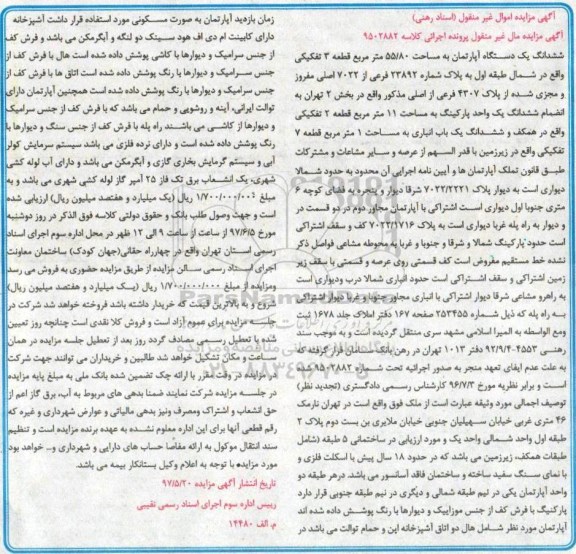 آگهی مزایده اموال غیر منقول (اسناد رهنی)
آگهی مزایده مال غیر منقول پرونده اجرائی کلاسه ۹۵۰۲۸۸۲
ششدانگ یک دستگاه آپارتمان به مساحت ۵۵/۸۰ متر مربع قطعه ۳ تفکیکی
واقع در شمال طبقه اول به پلاک شماره ۲۳۸۹۲ فرعی از ۷۰۲۲ اصلی مفروز
و مجزی شده از پلاک ۴۳۰۷ فرعی از اصلی مذکور واقع در بخش ۲ تهران به
انضمام ششدانگ یک واحد پارکینگ به مساحت ۱۱ متر مربع قطعه ۲ تفکیکی
واقع در همکف و ششدانگ یک باب انباری به مساحت ۱ متر مربع قطعه ۷
تفکیکی واقع در زیرزمین با قدر السهم از عرصه و سایر مشاعات و مشترکات
طبق قانون تملک آپارتمان ها و آیین نامه اجرایی آن محدود به حدود شمالا
دیواری است به دیوار پلاک ۷۰۲۲/۲۲۲۱ شرقا دیوار و پنجره به فضای کوچه ۶
متری جنوبا اول دیواری است اشتراکی با آپارتمان مجاور دوم در دو قسمت در
و دیوار به راه پله غربا دیواری است به پلاک ۷۰۲۲/۱۷۱۶ کف و سقف اشتراکی
است حدود پارکینگ شمالا و شرقا و جنوبا و غربا به محوطه مشاعی فواصل ذکر
نشده خط مستقیم مفروض است کف قسمتی روی عرصه و قسمتی با سقف زیر
زمین اشتراکی و سقف اشتراکی است حدود انباری شمالا درب ودیواری است
به راهرو مشاعی شرقا دیوار اشتراکی با انباری مجاور جنوبا
به راه پله که ذیل شماره ۲۵۳۴۵۵ صفحه ۱۶۷ دفتر املاک جلد ۱۶۷۸ ثبت
ومع الواسطه به المیرا اسلامی مشهد سری منتقل گردیده است و به موجب سند
رهنی ۹۲/۹/۴-۴۵۵۳ دفتر ۱۰۱۳ تهران در رهن بانک سامان قرار گرفته که
به علت عدم ایفای تعهد منجر به صدور اجرائیه تحت شماره ۹۵۰۲۸۸۲ شده
است و برابر نظریه مورخ ۹۶/۷/۳ کارشناس رسمی دادگستری (تجدید نظر)
توصیف اجمالی مورد وثیقه عبارت است از ملک فوق واقع است در تهران نارمک
۴۶ متری غربی خیابان سهیلیان جنوبی خیابان ملایری بن بست دوم پلاک ۲
طبقه اول واحد شمالی واحد یک و مورد ارزیابی در ساختمانی ۵ طبقه (شامل
طبقات همکف، زیرزمین می باشد که در حدود ۱۸ سال پیش با اسکلت فلزی و
با نمای سنگ سفید ساخته و ساختمان فاقد آسانسور می باشد. درهر طبقه دو
واحد آپارتمان یکی در نیم طبقه شمالی و دیگری در نیم طبقه جنوبی قرار دارد
پارکینگ با فرش کف از جنس موزاییک و دیوارها با رنگ پوشش داده شده اند
آپارتمان مورد نظر شامل هال دو اتاق آشپزخانه اپن و حمام توالت می باشد در
زمان بازدید آپارتمان به صورت مسکونی مورد استفاده قرار داشت آشپزخانه
دارای کابینت ام دی اف هود سینک دو لنگه و آبگرمکن می باشد و فرش کف
از جنس سرامیک و دیوارها با کاشی پوشش داده شده است هال با فرش کف از
جنس سرامیک و دیوارها با رنگ پوشش داده شده است اتاق ها با فرش کف از
جنس سرامیک و دیوارها با رنگ پوشش داده شده است همچنین آپارتمان دارای
توالت ایرانی، آینه و روشویی و حمام می باشد که با فرش کف از جنس سرامیک
و دیوارها از کاشی می باشند راه پله با فرش کف از جنس سنگ و دیوارها با
رنگ پوشش داده شده است و دارای نرده فلزی می باشد سیستم سرمایش کولر
آبی و سیستم گرمایش بخاری گازی و آبگرمکن می باشد و دارای آب لوله کشی
شهری، یک انشعاب برق تک فاز ۲۵ آمپر گاز لوله کشی شهری می باشد و به
مبلغ ۱/۷۰۰/۰۰۰/۰۰۰ ریال (یک میلیارد و هفتصد میلیون ریال) ارزیابی شده
است و جهت وصول طلب بانک و حقوق دولتی کلاسه فوق الذکر در روز دوشنبه
مورخ ۹۷/۶/۵ از ساعت از ساعت ۹ الی ۱۲ ظهر در محل اداره سوم اجرای اسناد
رسمی استان تهران واقع در چهارراه حقانی(جهان کودک) ساختمان معاونت
اجرای اسناد رسمی سالن مزایده از طریق مزایده حضوری به فروش می رسد
ومزایده از مبلغ ۱/۷۰۰/۰۰۰/۰۰۰ ریال (یک میلیارد و هفتصد میلیون ریال)
شروع و به بالاترین قیمت که خریدار داشته باشد فروخته خواهد شد شرکت در
جلسه مزایده برای عموم آزاد است و فروش کلا نقدی است چنانچه روز تعیین
شده با تعطیل رسمی مصادف گردد روز بعد از تعطیل جلسه مزایده در همان
ساعت و مکان تشکیل خواهد شد طالبین و خریداران می توانند جهت شرکت
در مزایده در وقت مقرر با ارائه چک تضمین شده بانک ملی به مبلغ پایه مزایده
در جلسه مزایده شرکت نمایند ضمنا بدهی های مربوط به آب، برق گاز اعم از
حق انشعاب و اشتراک ومصرف ونیز بدهی مالیاتی و عوارض شهرداری و غیره که
رقم قطعی آنها برای این اداره معلوم نشده به عهده برنده مزایده است و تنظیم
سند انتقال موکول به ارائه مفاصا حساب های دارایی و شهرداری و... خواهد بود
مورد مزایده با توجه به اعلام وکیل بستانکار بیمه می باشد.
تاریخ انتشار آگهی مزایده ۹۷/۵/۲۰
رییس اداره سوم اجرای اسناد رسمی نقیبی
م. الف ۱۴۴۸۰